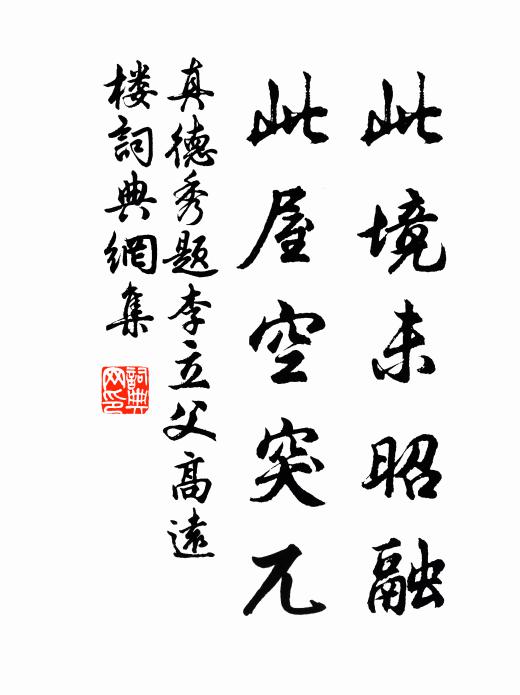 此境未昭融
此屋空突兀
真德秀題李立父高遠
楼詞典網集
詞典
网印